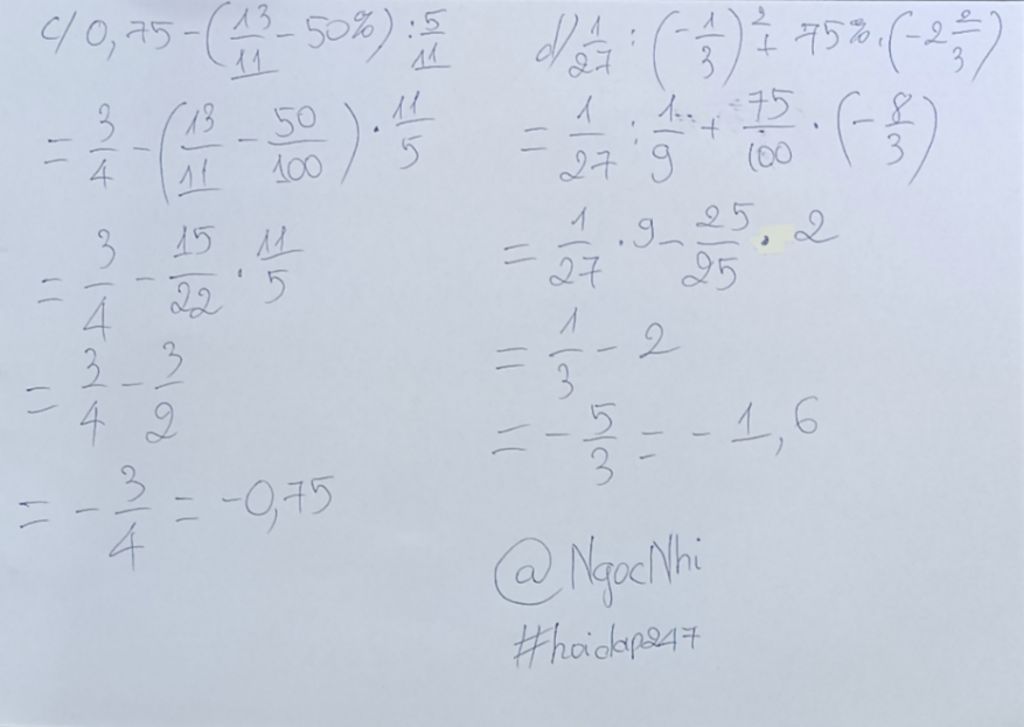 c/ 0,75 - (13/11 - 50%) : 5/11
= 3/4 - (13/11 - 50/100) . 11/5
= 3/4 - 15/22 . 11/5
= 3/4 - 3/2
= - 3/4 = -0,75
d/ 1/27 : (-1/3)² + 75% . (-2 2/3)
= 1/27 : 1/9 + 75/100 . (-8/3)
= 1/27 . 9 - 25/25 . 2
= 1/3 - 2
= - 5/3 = - 1,6
@NgocNhi
#hoidap247